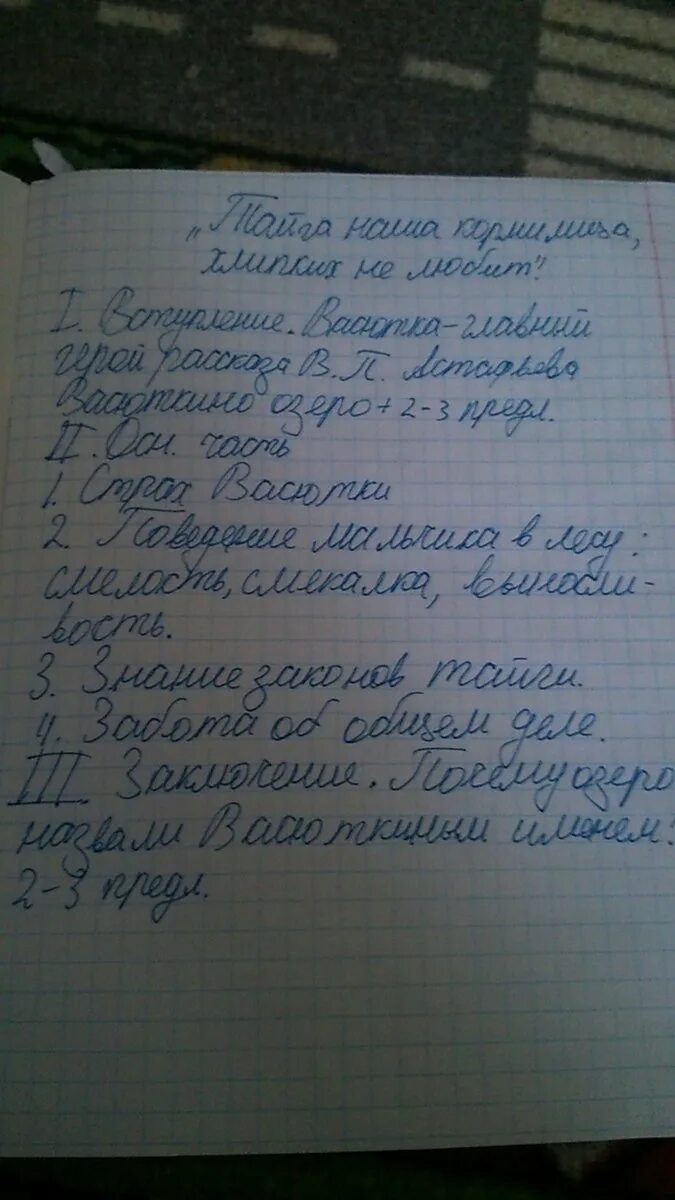 „Тайга наша кормилица,
хлипких не любит"!
I. Вступление. Васютка-главный
герой рассказа В.П. Астафьева
Васюткино озеро + 2-3 предл.
II. Осн. часть
1. Страх Васютки
2. Поведение мальчика в лесу:
смелость, смекалка, выносли-
вость.
3. Знание законов тайги.
4. Забота об общем деле.
III. Заключение. Почему озеро
назвали Васюткиным именем?
2-3 предл.